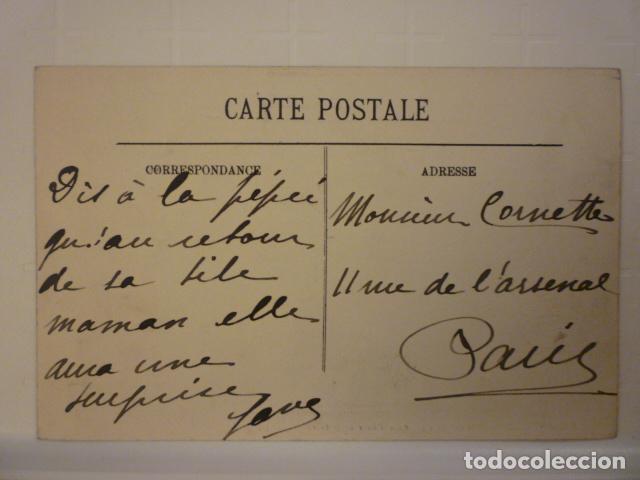 CARTE POSTALE
CORRESPONDANCE
Dis à la
qu'au retour
de sa
maman elle
aura une
surprise
ADRESSE
Monsieur Cornette
11 rue de l'arsenal
Paris
todocoleccion.net